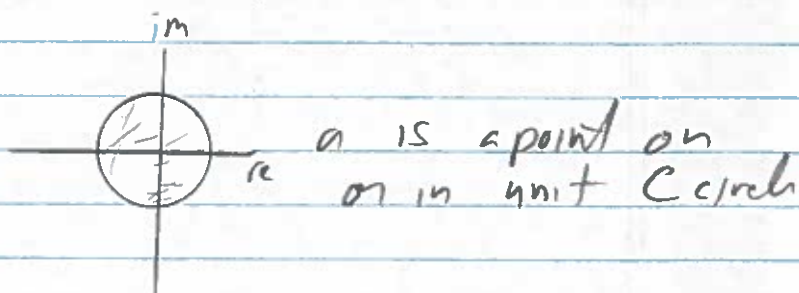 im
re
a is a point on
or in unit C circle